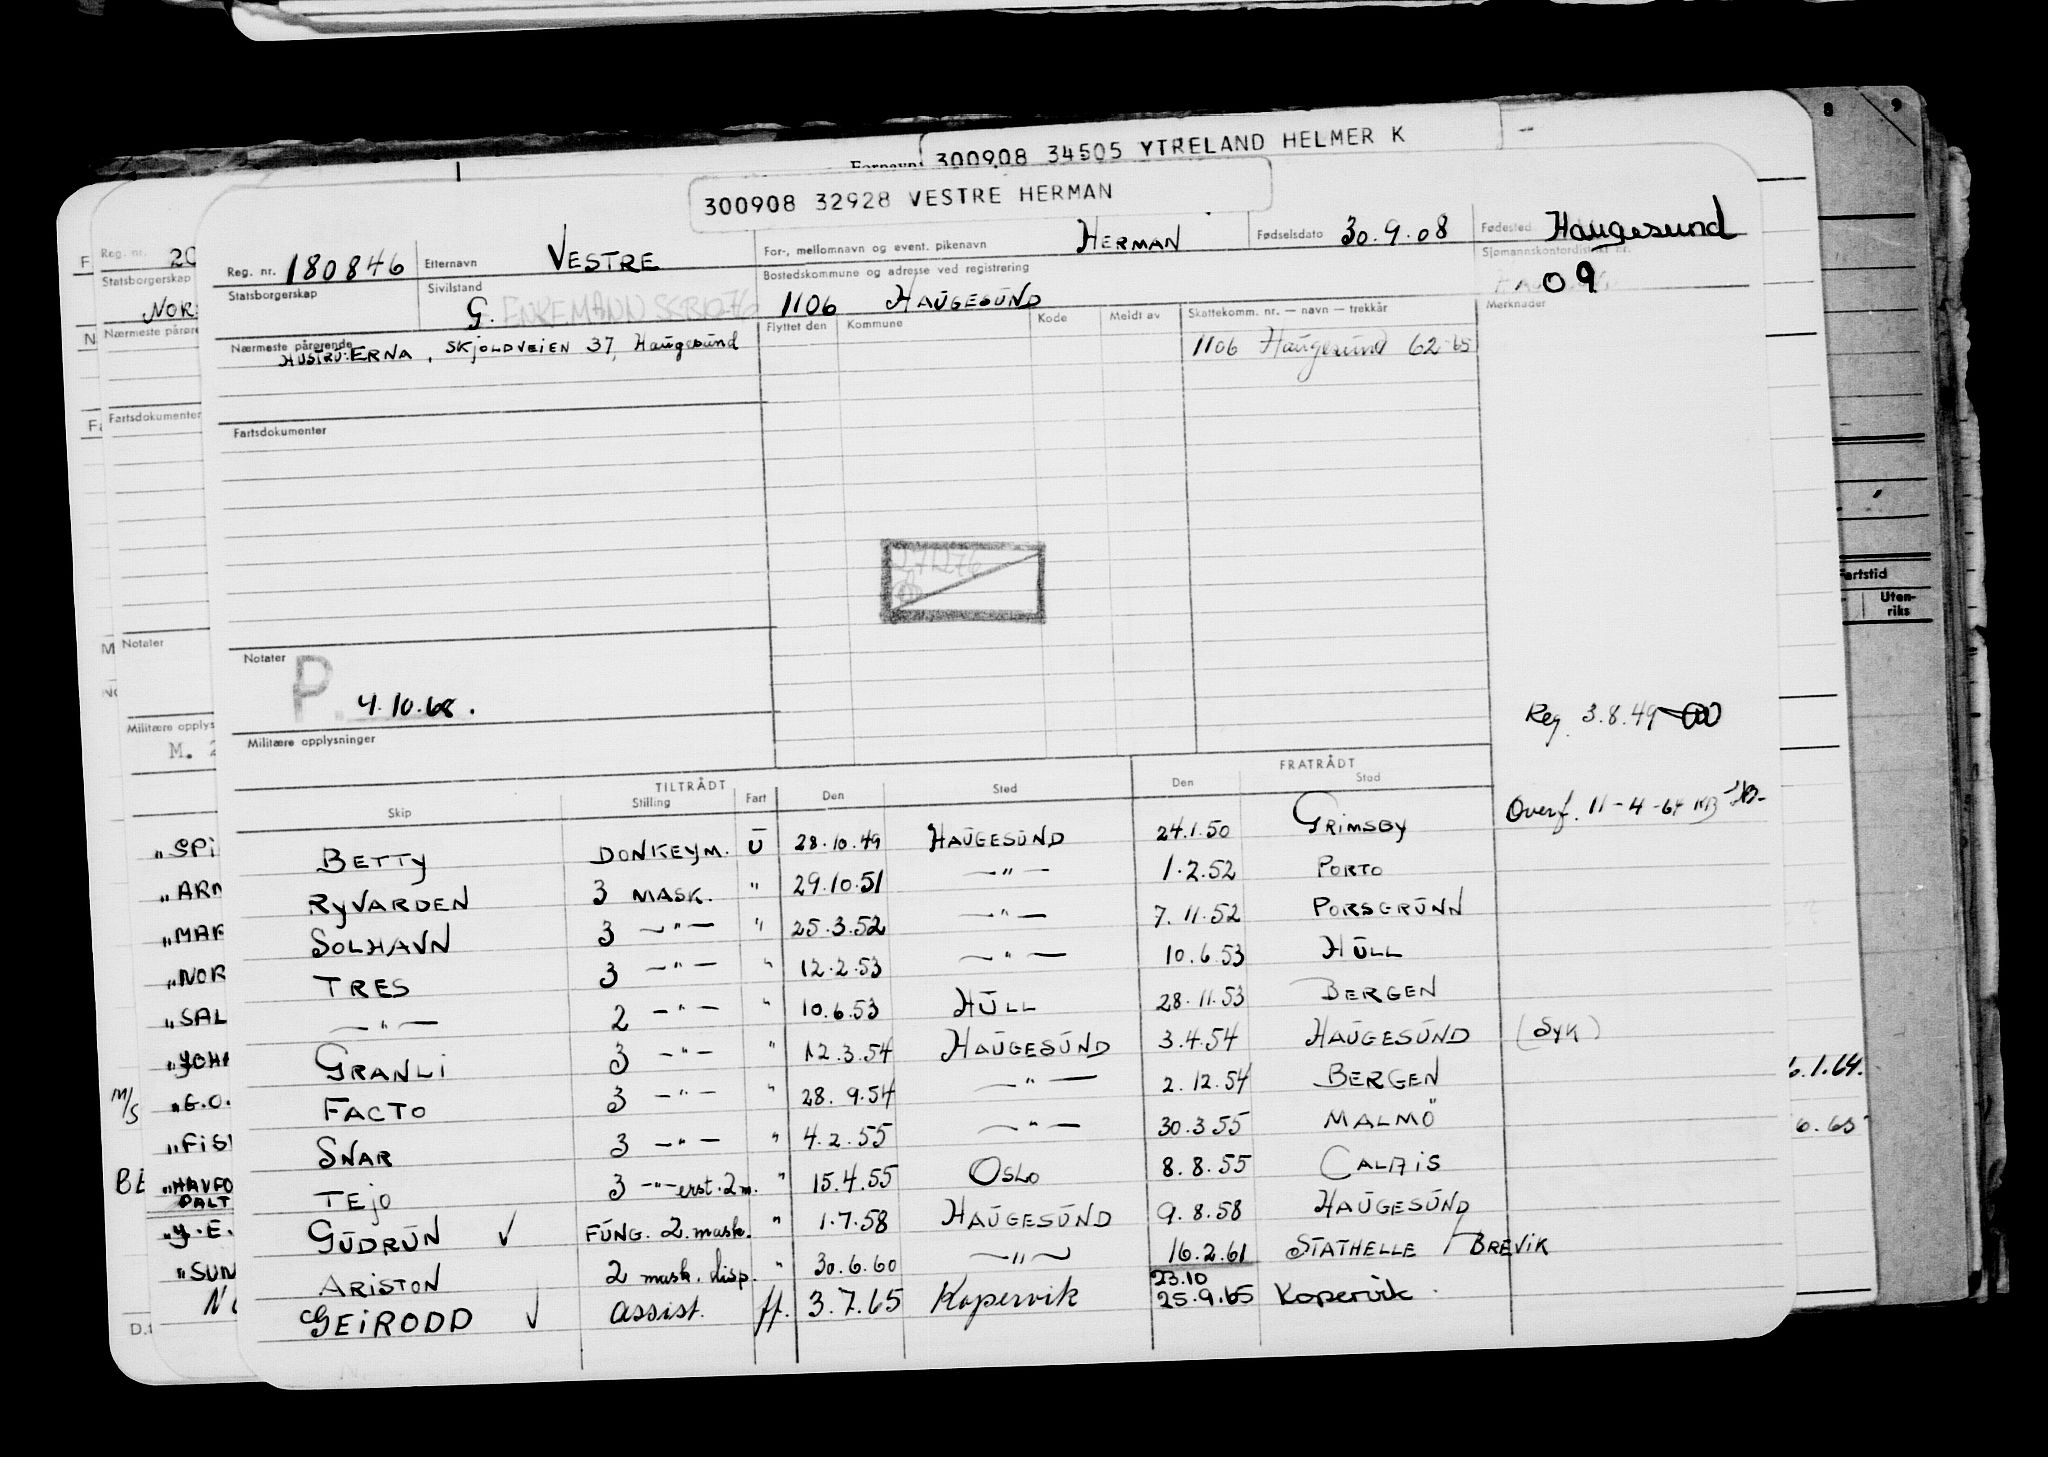 8 9
300908 34505 YTRELAND HELMER K
300908 32928 VESTRE HERMAN
Reg. nr. 180846 Etternavn VESTRE For-, mellomnavn og event. pikenavn HERMAN Fødselsdato 30.9.08 Fødested Haugesund
Statsborgerskap Sivilstand G. ENKEMANN Bostedskommune og adresse ved registrering 1106 HAUGESUND Sjømannskontordistrikt nr. 09
Nærmeste pårørende Flyttet den Kommune Kode Meldt av Skattekomm. nr. — navn — trekkår Merknader
HUSTRU: ERNA, SKJOLDVEIEN 37, Haugesund 1106 Haugesund 62-65
Fartsdokumenter
Notater P. 4.10.68.
Reg. 3.8.49
Militære opplysninger
TILTRÅDT FRATRÅDT
Skip Stilling Fart Den Sted Den Sted
Overf. 11-4-64
BETTY DONKEYM. U 28.10.49 HAUGESUND 24.1.50 GRIMSBY
RYVARDEN 3 MASK. " 29.10.51 —"— 1.2.52 PORTO
SOLHAVN 3 —"— " 25.3.52 —"— 7.11.52 PORSGRUNN
TRES 3 —"— " 12.2.53 —"— 10.6.53 HULL
—"— 2 —"— " 10.6.53 HULL 28.11.53 BERGEN
GRANLI 3 —"— " 12.3.54 HAUGESUND 3.4.54 HAUGESUND (SYK)
FACTO 3 —"— " 28.9.54 —"— 2.12.54 BERGEN
SNAR 3 —"— " 4.2.55 —"— 30.3.55 MALMÖ
TEJO 3 —"— erst. 2 m. " 15.4.55 OSLO 8.8.55 CALAIS
GUDRUN ✓ FUNG. 2. mask. " 1.7.58 HAUGESUND 9.8.58 HAUGESUND
ARISTON 2 mask. disp. " 30.6.60 —"— 16.2.61 STATHELLE / BREVIK
23.10
GEIRODD ✓ assist. ff. 3.7.65 Kopervik 25.9.65 Kopervik.
Reg. nr. 20
Statsborgerskap
NOR
Nærmeste pårøre
Fartsdokumenter
Notater
Militære opplys
M. 2
"SPI
"ARN
"MAR
"NOR
"SAL
"JOHA
M/S "G.O.
"FIS
Bt "HAVFO
PALT
"J.E.
"SUN
Fartstid
Uten-
riks
6.1.64.
6.65